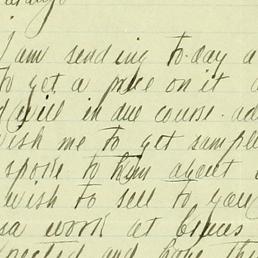 I am sending to-day a
to get a price on it
will in due course. ad
wish me to get sampl
spoke to him about
wish to sell to you
work at
and hope th